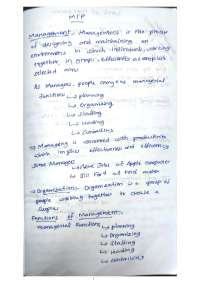 MTP
Management:- Management is the process
of designing and maintaining an
environment in which individuals, working
together in groups, efficiently accomplish
selected aims.
As Managers, people carryout managerial
functions → planning
→ Organizing
→ Staffing
→ Leading
→ Controlling
→ Managing is concerned with productivity
which implies effectiveness and efficiency
Some Managers
→ Steve Jobs at Apple computer
→ Bill Ford at Ford motor
→ Organization:- Organization is a group of
people working together to create a
Surplus.
Functions of Management:-
managerial Functions → planning
→ Organizing
→ Staffing
→ Leading
→ controlling